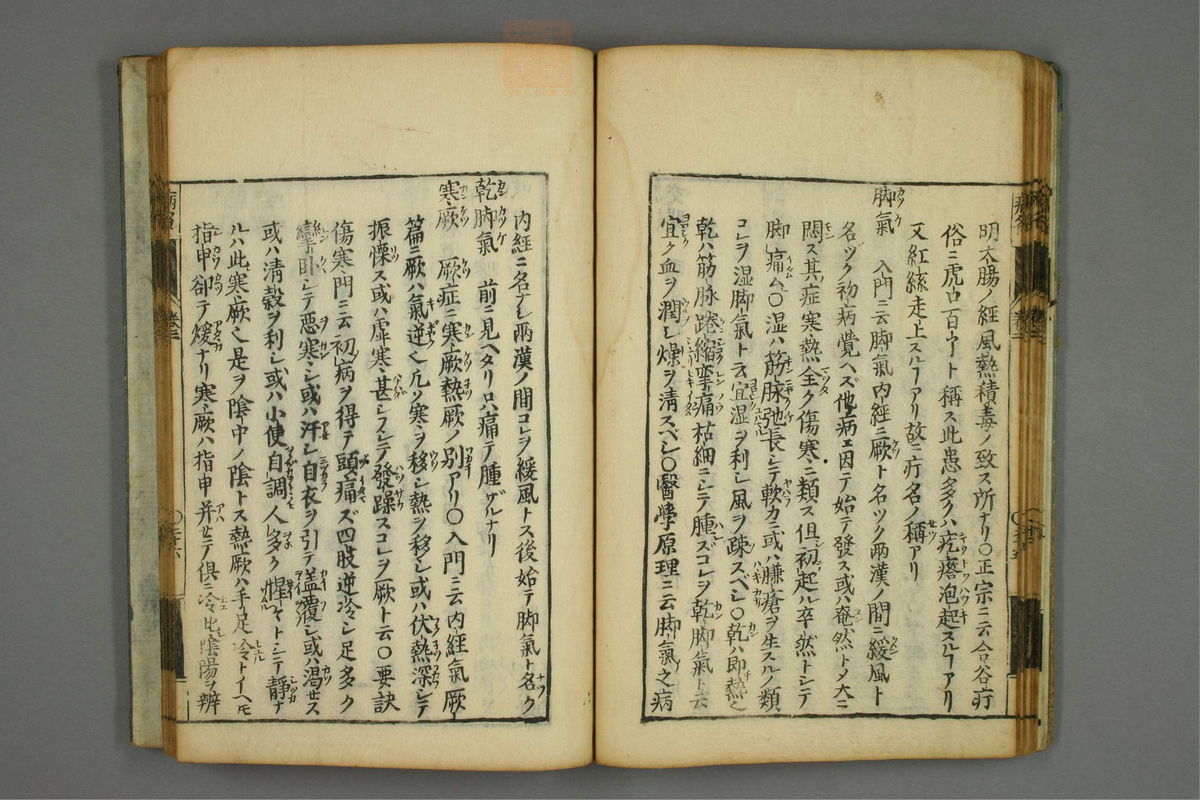 明太腸ノ経風熱積毒ノ致ス所ナリ〇正宗ニ云合谷疔
俗ニ虎口百丫ト稱ス此患多クハ疙瘩泡起スルヿアリ
又紅絲走上スルヿアリ故ニ疔名ノ稱アリ
脚氣 入門ニ云脚氣内經ニ厥ト名ツク兩漢ノ間ニ緩風ト
名ヅク初病覺ヘズ他病ニ因テ始テ發ス或ハ奄然トメ大ニ
悶ス其症寒熱全ク傷寒ニ類ス但初起ル卒然トシテ
脚痛ム〇湿ハ筋脉弛長シテ軟カニ或ハ臁瘡ヲ生スルノ類
コレヲ湿脚氣ト云宜湿ヲ利シ風ヲ疎スベシ〇乾ハ即熱也
乾ハ筋脉踡縮攣痛枯細ニシテ腫ズコレヲ乾脚氣ト云
宜ク血ヲ潤シ燥ヲ清スベシ〇醫學原理ニ云脚氣之病
内經ニ名ナシ兩漢ノ間コレヲ緩風トス後始テ脚氣ト名ク
乾脚氣 前ニ見ヘタリ只痛テ腫ザルナリ
寒厥 厥症ニ寒厥熱厥ノ別アリ〇入門ニ云内經氣厥
篇ニ厥ハ氣逆也凡ソ寒ヲ移シ熱ヲ移シ或ハ伏熱深シテ
振慄ス或ハ虚寒甚シフシテ發躁スコレヲ厥ト云〇要訣
傷寒門ニ云初病ヲ得テ頭痛ズ四肢逆冷シ足多ク
攣卧シテ惡寒シ或ハ汗シ自衣ヲ引テ蓋覆シ或ハ渇セス
或ハ清穀ヲ利シ或ハ小使自調人多ク惺々トシテ靜ナ
ルハ此寒厥也是ヲ陰中ノ陰トス熱厥ハ手足冷トイヘモ
指甲却テ煖ナリ寒厥ハ指甲并セテ倶ニ冷此陰陽ヲ辨